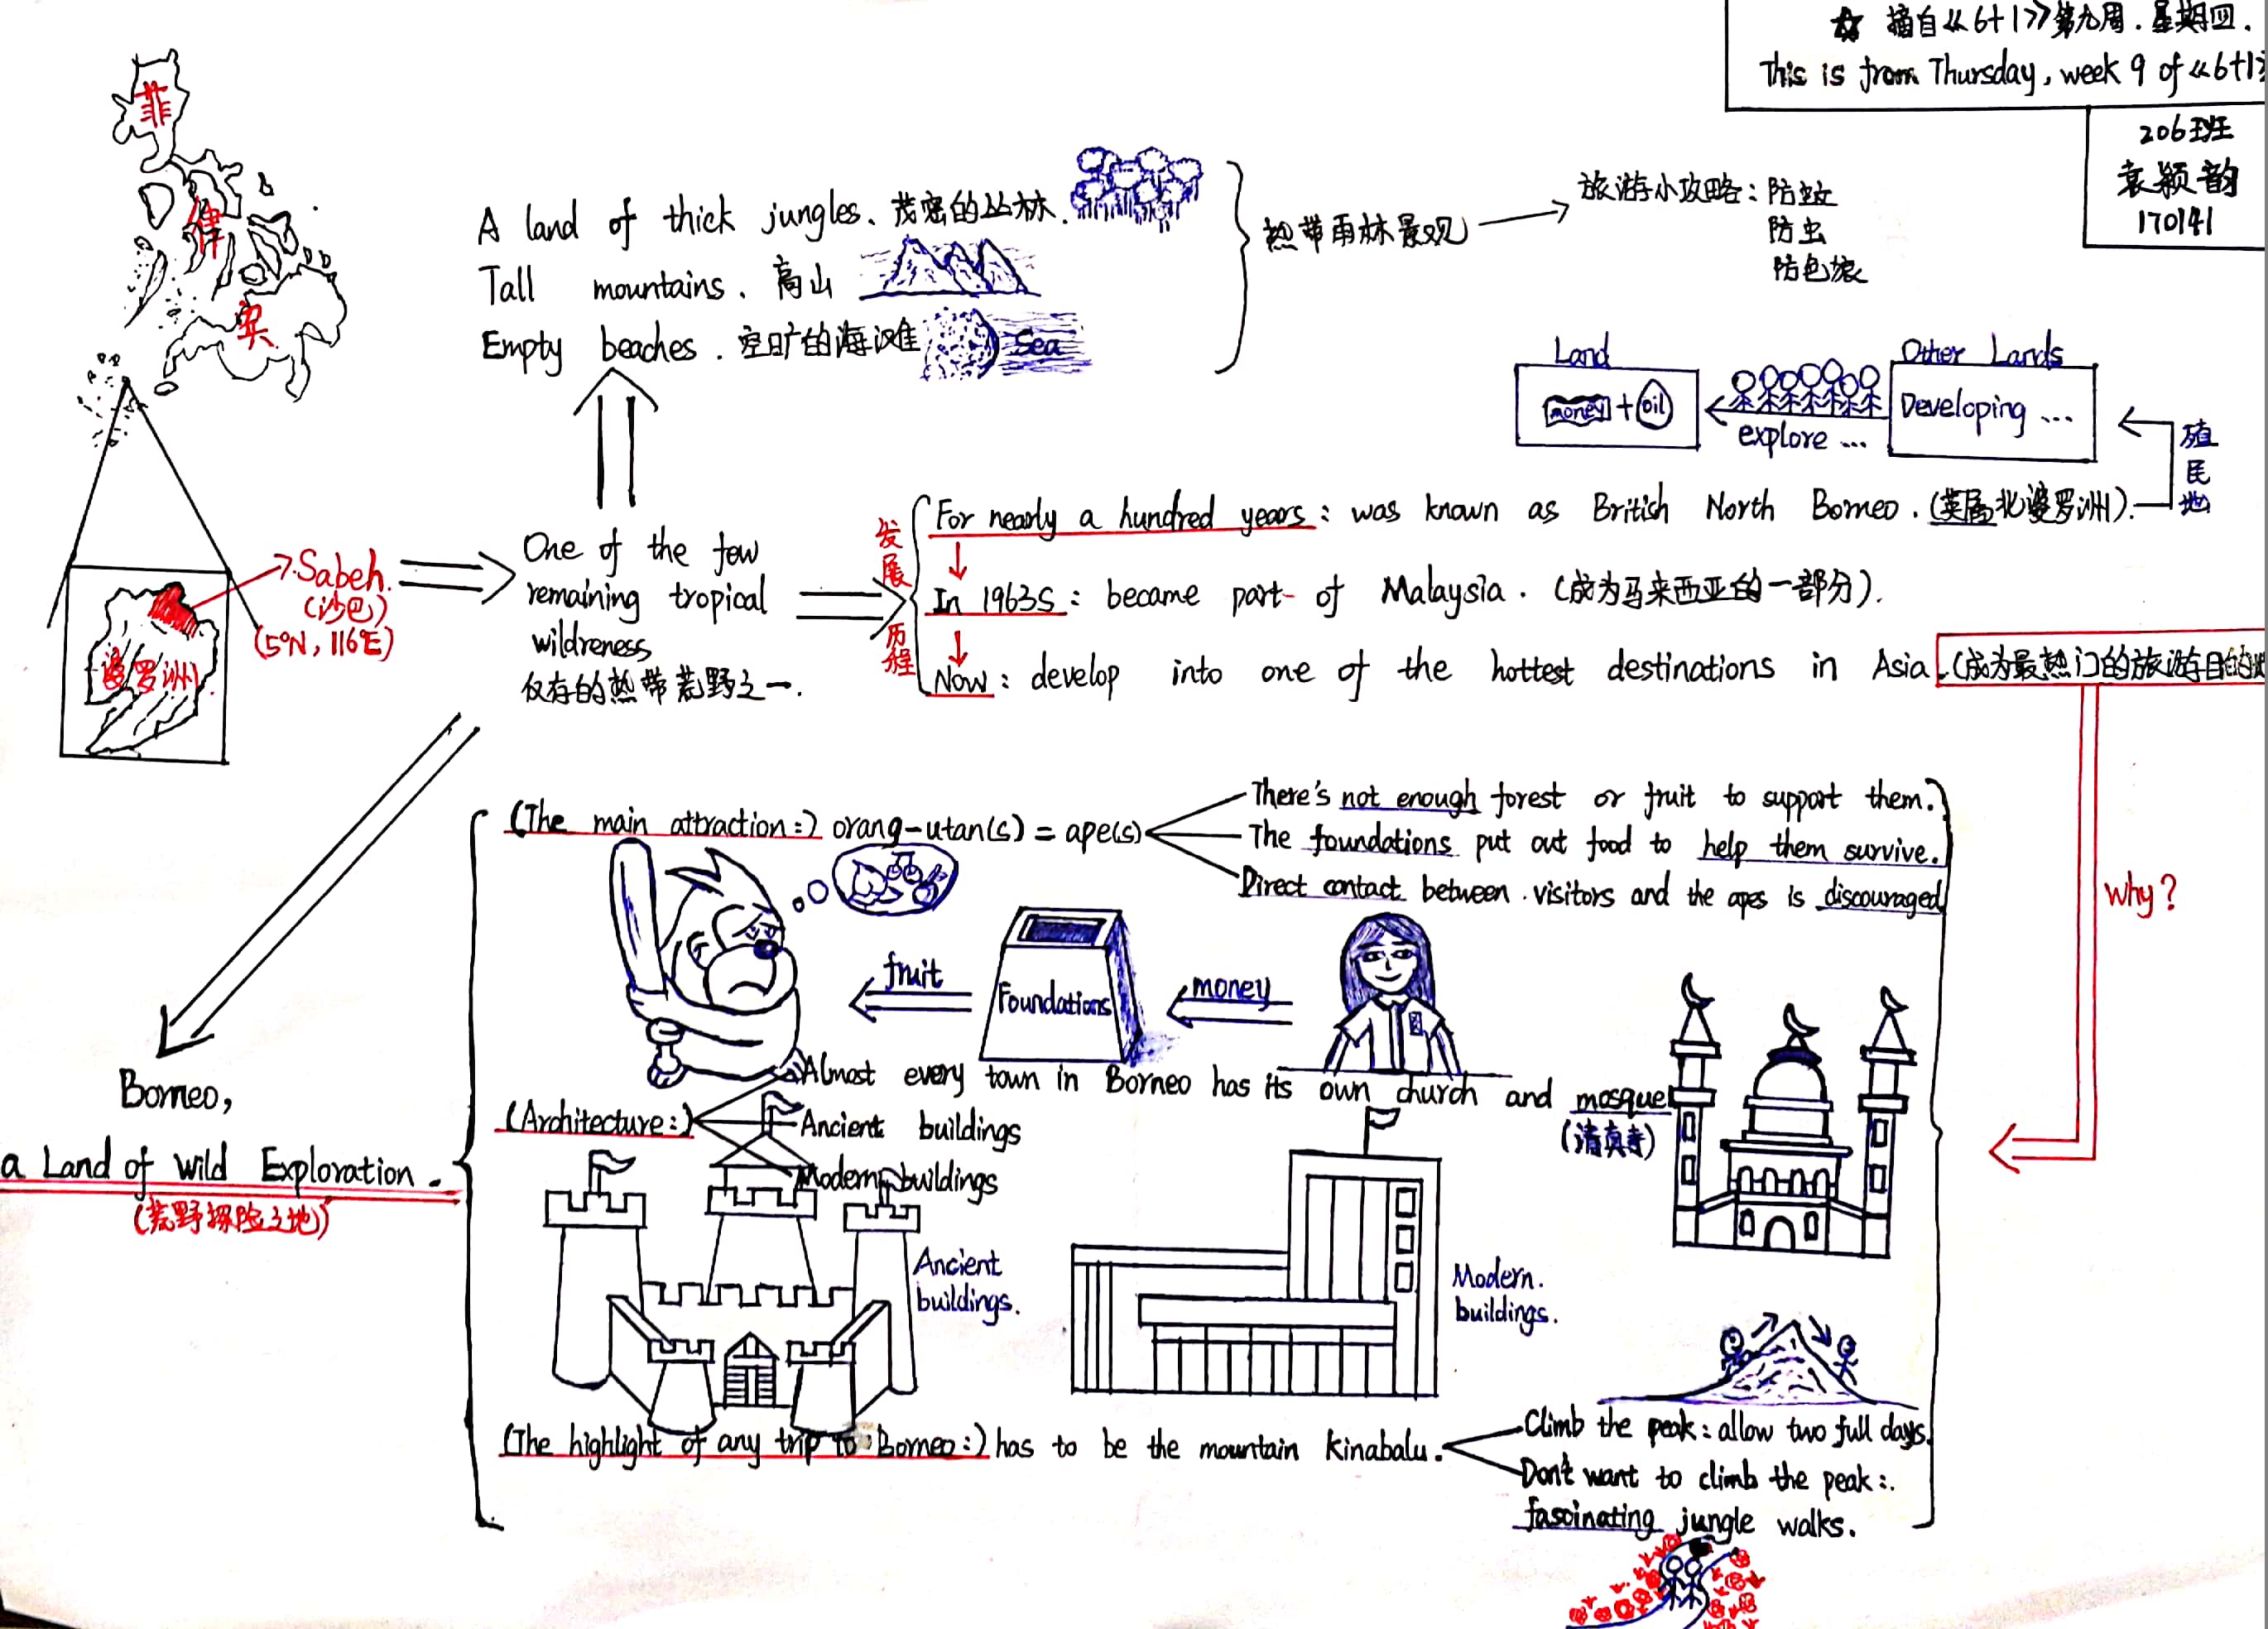 ☆ 摘自《6+1》第九周.星期四.
This is from Thursday, week 9 of 《6+1》
206班
袁颖韵
170141
菲
律
宾
A land of thick jungles、茂密的丛林.
Tall mountains、高山
Empty beaches.空旷的海滩
Sea
热带雨林景观
旅游小攻略:防蚊
防虫
Land
money + oil
explore ...
Other Lands
Developing ...
殖民地
Sabeh.
(沙巴)
(5°N, 116°E)
婆罗洲
One of the few
remaining tropical
wildreness
仅存的热带荒野之一.
发展历程
For nearly a hundred years: was known as British North Borneo.(英属北婆罗洲).
In 1963s: became part of Malaysia.(成为马来西亚的一部分).
Now: develop into one of the hottest destinations in Asia.(成为最热门的旅游目的地
why?
Borneo,
a Land of Wild Exploration.
(荒野探险之地)
(The main attraction:) orang-utan(s) = ape(s)
There's not enough forest or fruit to support them.
The foundations put out food to help them survive.
Direct contact between visitors and the apes is discouraged
fruit
Foundations
money
(Architecture:)
Almost every town in Borneo has its own church and mosque
(清真寺)
Ancient buildings
Modern buildings
Ancient
buildings.
Modern.
buildings.
(The highlight of any trip to Borneo:) has to be the mountain Kinabalu.
Climb the peak: allow two full days.
Don't want to climb the peak:.
fascinating jungle walks.